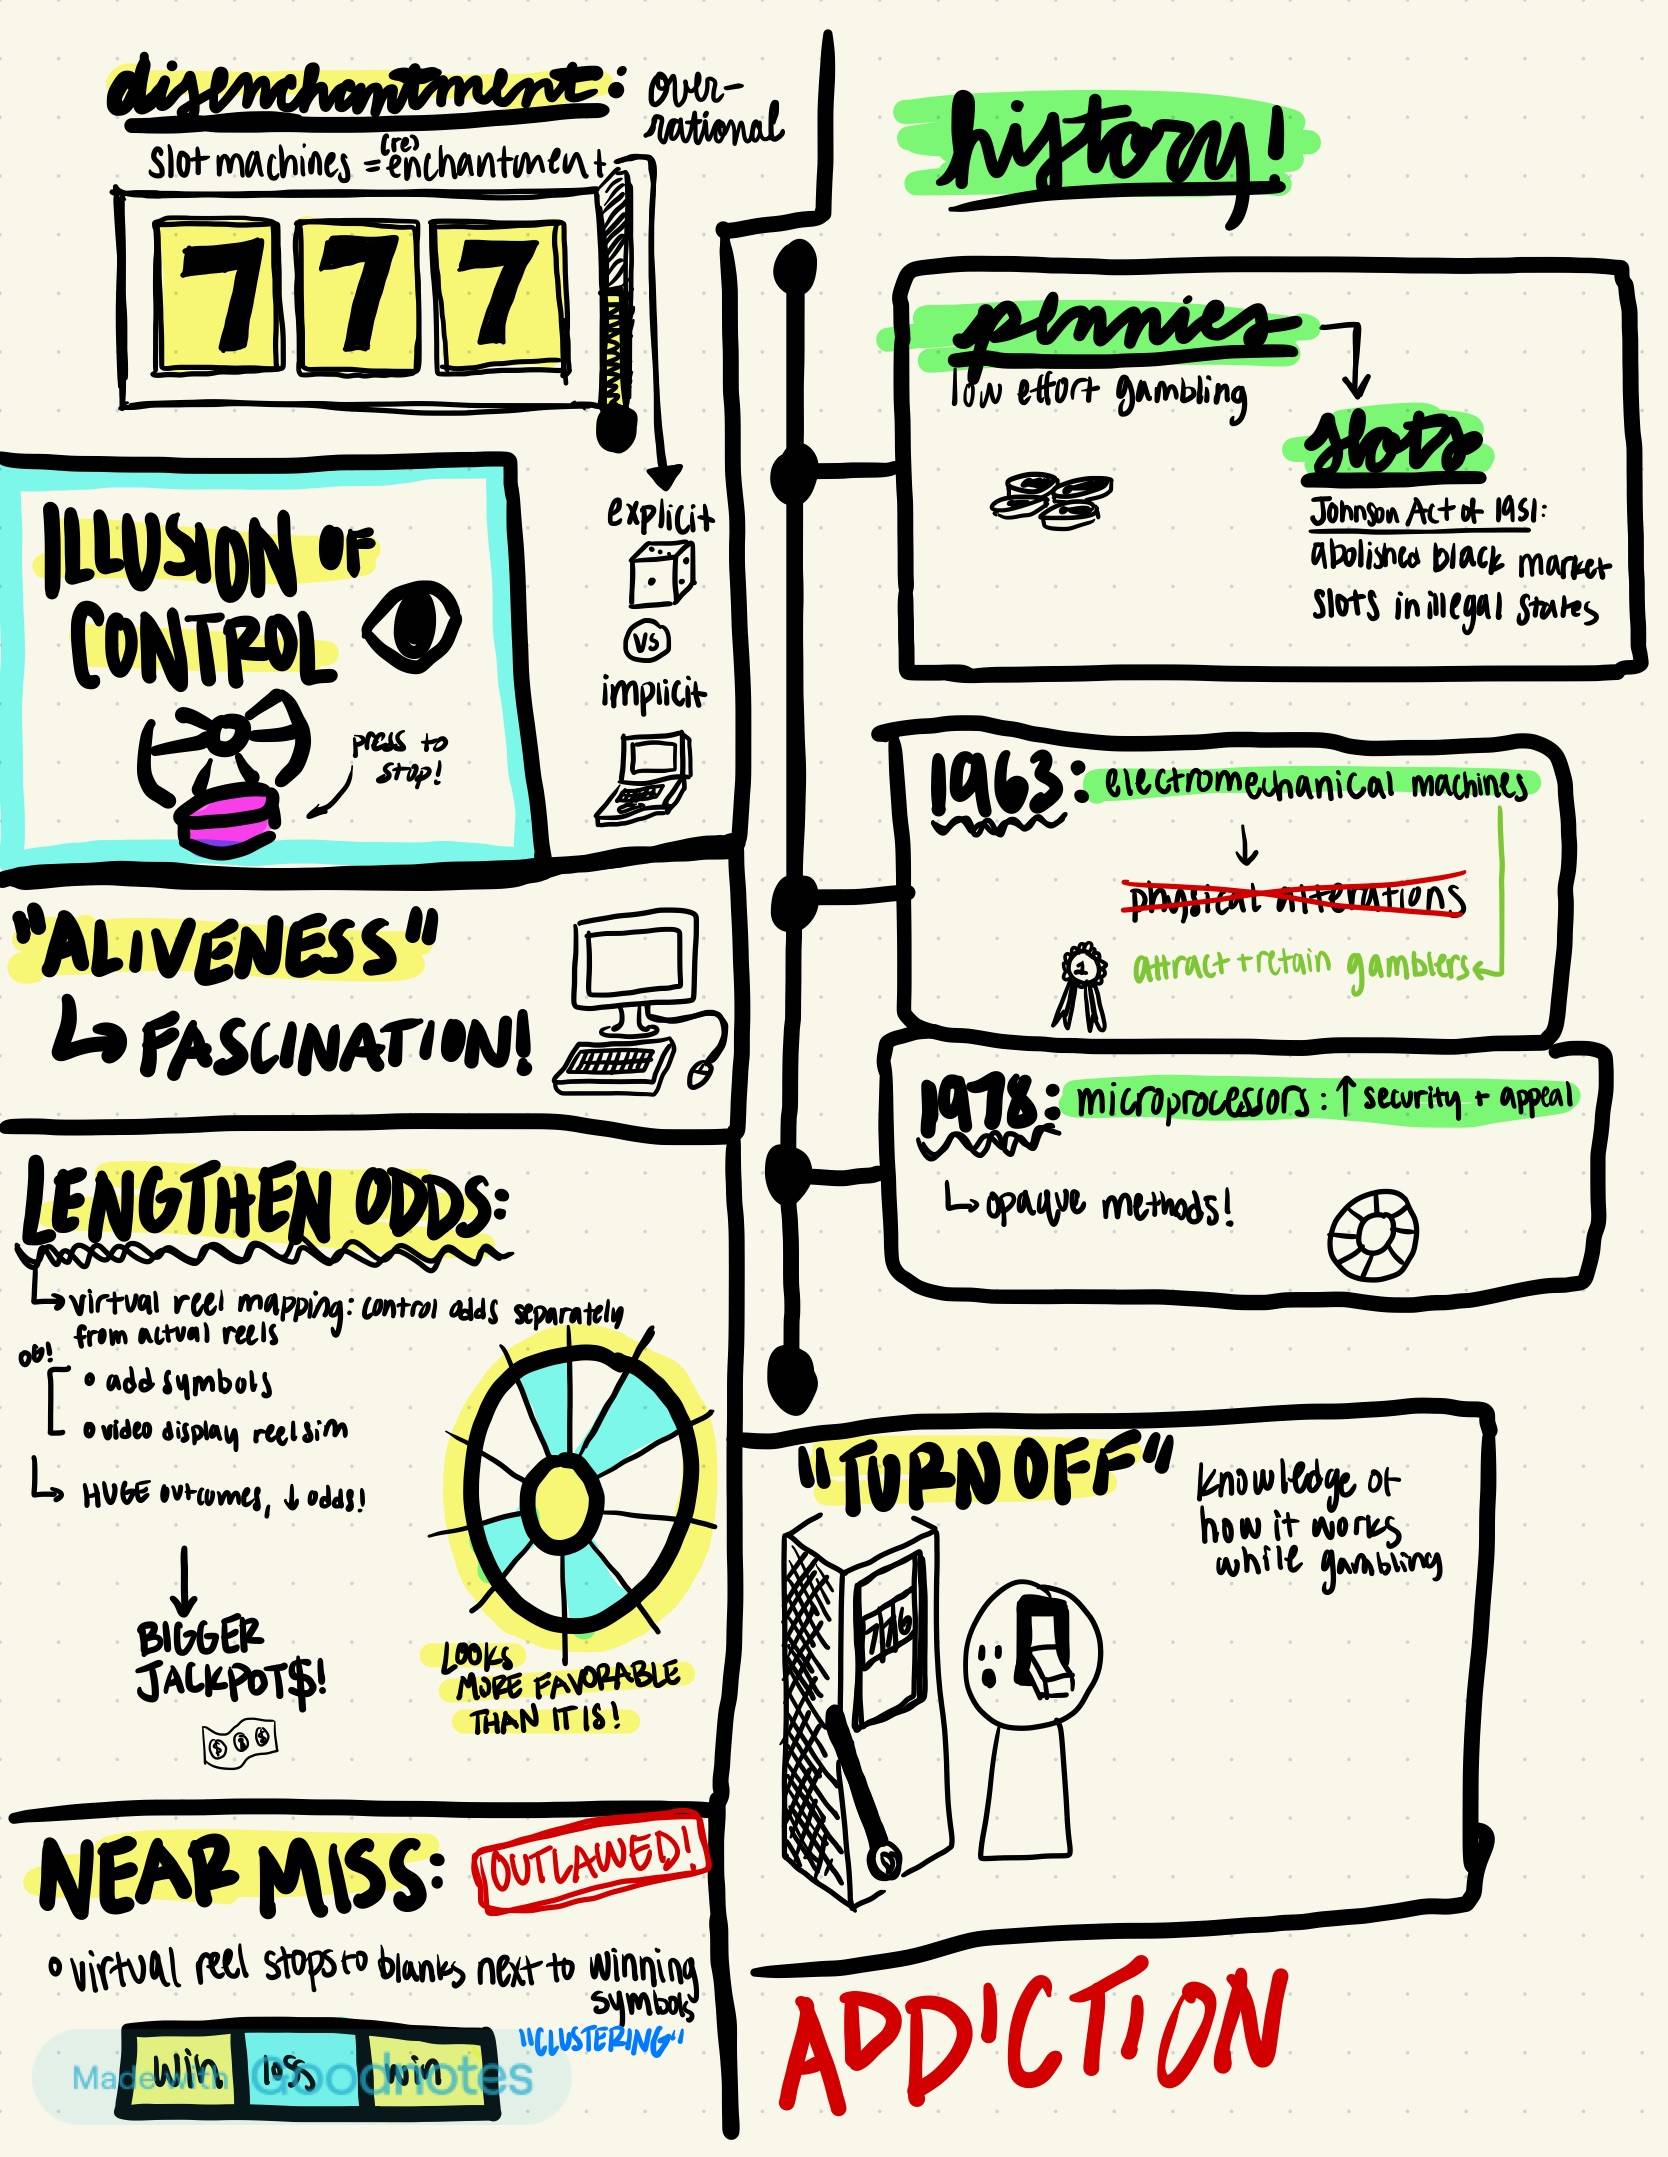 disenchantment: over-
rational
slot machines = (re)enchantment
7 7 7
explicit
vs
implicit
ILLUSION OF
CONTROL
press to
stop!
"ALIVENESS"
FASCINATION!
LENGTHEN ODDS:
virtual reel mapping: control odds separately
from actual reels
OG!
add symbols
video display reel sim
HUGE outcomes, ↓ odds!
BIGGER
JACKPOT$!
$ $ $
LOOKS
MORE FAVORABLE
THAN IT IS!
NEAR MISS:
OUTLAWED!
virtual reel stops to blanks next to winning
symbols
"CLUSTERING"
win loss win
Made with Goodnotes
history!
pennies
low effort gambling
slots
Johnson Act of 1951:
abolished black market
slots in illegal states
1963: electromechanical machines
physical alterations
1
attract + retain gamblers
1978: microprocessors: ↑ security + appeal
opaque methods!
"TURN OFF"
knowledge of
how it works
while gambling
776
ADDICTION